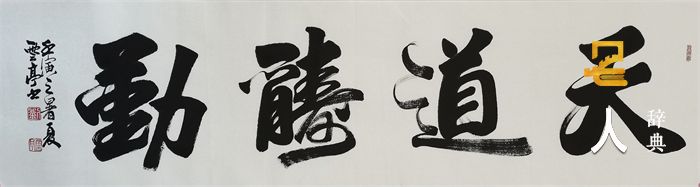 天道醻勤
壬寅之暑夏
雲亭书
名人
辞典